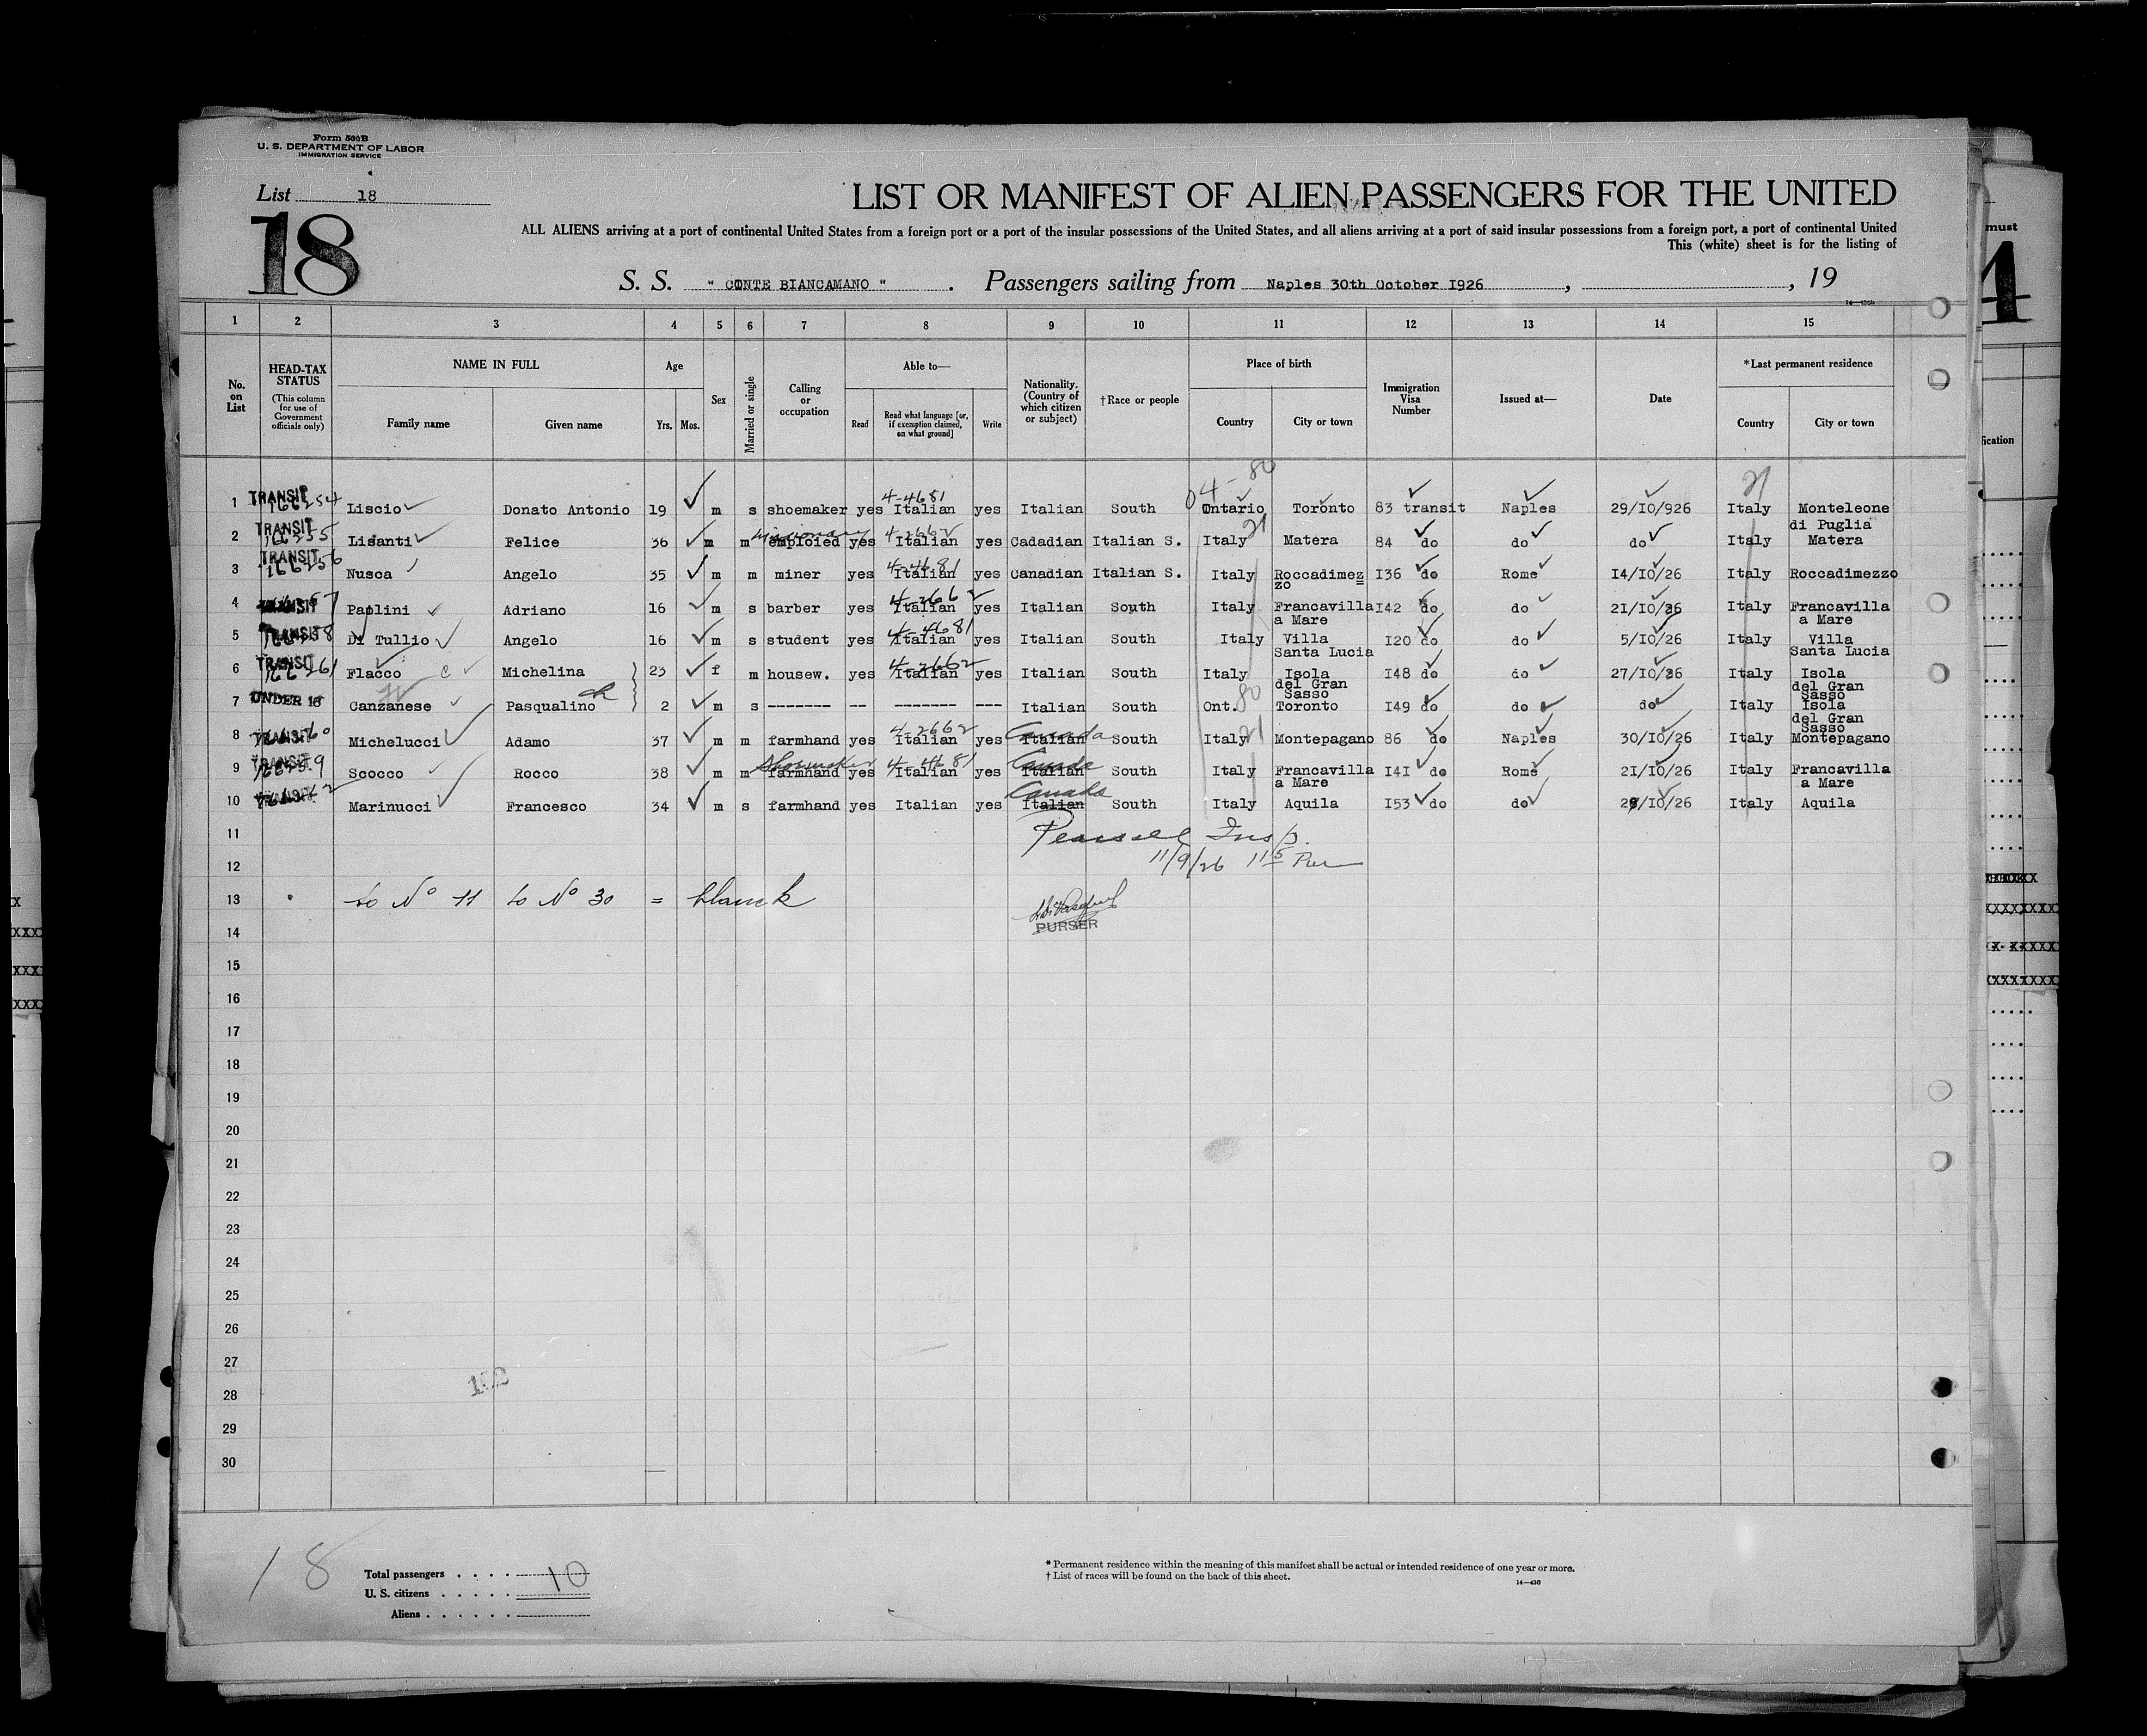 Form 500B
U. S. DEPARTMENT OF LABOR
IMMIGRATION SERVICE
List 18
18
LIST OR MANIFEST OF ALIEN PASSENGERS FOR THE UNITED
ALL ALIENS arriving at a port of continental United States from a foreign port or a port of the insular possessions of the United States, and all aliens arriving at a port of said insular possessions from a foreign port, a port of continental United
This (white) sheet is for the listing of
S. S. " CONTE BIANCAMANO " . Passengers sailing from Naples 30th October 1926 , , 19
1 2 3 4 5 6 7 8 9 10 11 12 13 14 15
No. on List
HEAD-TAX STATUS (This column for use of Government officials only)
NAME IN FULL Family name Given name
Age Yrs. Mos.
Sex
Married or single
Calling or occupation
Able to— Read Read what language [or, if exemption claimed, on what ground] Write
Nationality. (Country of which citizen or subject)
†Race or people
Place of birth Country City or town
Immigration Visa Number
Issued at—
Date
*Last permanent residence Country City or town
04-80 21
1 TRANSIT 166254 Liscio Donato Antonio 19 m s shoemaker yes 4-4681 Italian yes Italian South Ontario Toronto 83 transit Naples 29/10/926 Italy Monteleone di Puglia
2 TRANSIT 166255 Lisanti Felice 36 m m Missionary emploied yes 4-2662 Italian yes Cadadian Italian S. Italy 21 Matera 84 do do do Italy Matera
3 TRANSIT 166256 Nusca Angelo 35 m m miner yes 4-4681 Italian yes Canadian Italian S. Italy Roccadimezzo I36 do Rome I4/IO/26 Italy Roccadimezzo
4 TRANSIT Paolini Adriano 16 m s barber yes 4-2662 Italian yes Italian South Italy Francavilla a Mare I42 do do 2I/IO/26 Italy Francavilla a Mare
5 TRANSIT Di Tullio Angelo 16 m s student yes 4-4681 Italian yes Italian South Italy Villa Santa Lucia I20 do do 5/IO/26 Italy Villa Santa Lucia
6 TRANSIT 166261 Flacco Michelina 23 f m housew. yes 4-2662 Italian yes Italian South Italy Isola del Gran Sasso I48 do do 27/IO/26 Italy Isola del Gran Sasso
7 UNDER 16 Canzanese Pasqualino ch 2 m s ------- -- ------- --- Italian South Ont. 80 Toronto I49 do do do Italy Isola del Gran Sasso
8 TRANSIT Michelucci Adamo 37 m m farmhand yes 4-2662 Italian yes Italian Canada South Italy 21 Montepagano 86 do Naples 30/IO/26 Italy Montepagano
9 TRANSIT Scocco Rocco 38 m m Shoemaker farmhand yes 4-4681 Italian yes Canada Italian South Italy Francavilla a Mare I4I do Rome 2I/IO/26 Italy Francavilla a Mare
10 TRANSIT Marinucci Francesco 34 m s farmhand yes Italian yes Canada Italian South Italy Aquila I53 do do 29/IO/26 Italy Aquila
11 Insp.
12 11/9/26
13 to No 11 to No 30 = blanck
PURSER
14
15
16
17
18
19
20
21
22
23
24
25
26
27
28
29
30
18
Total passengers . . . . 10
U. S. citizens . . . . .
Aliens . . . . . .
* Permanent residence within the meaning of this manifest shall be actual or intended residence of one year or more.
† List of races will be found on the back of this sheet.
14—430
must
4
ication